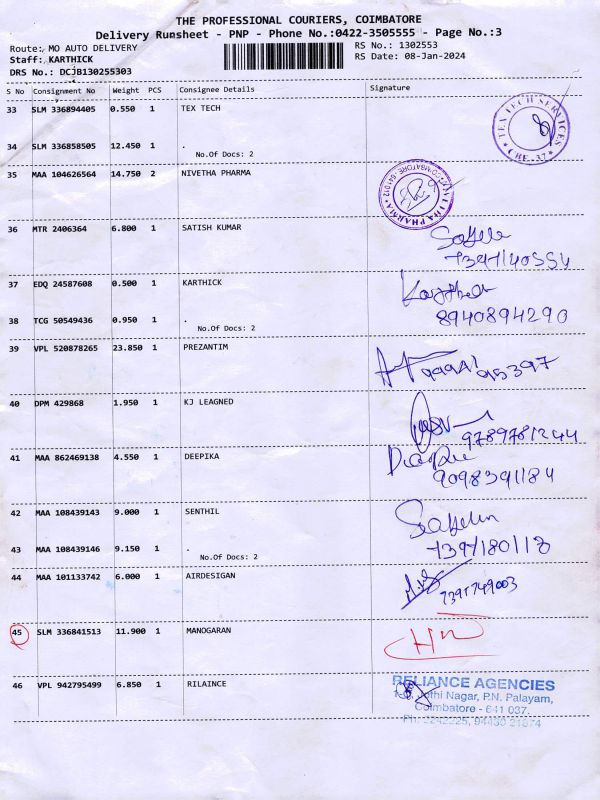 THE PROFESSIONAL COURIERS, COIMBATORE
Delivery Runsheet - PNP - Phone No.:0422-3505555 - Page No.:3
Route: MO AUTO DELIVERY
RS No.: 1302553
Staff: KARTHICK
RS Date: 08-Jan-2024
DRS No.: DCJB130255303
S No Consignment No Weight PCS Consignee Details Signature
33 SLM 336894405 0.550 1 TEX TECH
TEX TECH SERVICES
CBE-37
34 SLM 336858505 12.450 1 .
No.Of Docs: 2
35 MAA 104626564 14.750 2 NIVETHA PHARMA
36 MTR 2406364 6.800 1 SATISH KUMAR
37 EDQ 24587608 0.500 1 KARTHICK
38 TCG 50549436 0.950 1 .
8940894290
No.Of Docs: 2
39 VPL 520878265 23.850 1 PREZANTIM
40 DPM 429868 1.950 1 KJ LEAGNED
9789781244
41 MAA 862469138 4.550 1 DEEPIKA
9098391184
42 MAA 108439143 9.000 1 SENTHIL
43 MAA 108439146 9.150 1 .
7397180118
No.Of Docs: 2
44 MAA 101133742 6.000 1 AIRDESIGAN
7397749003
45 SLM 336841513 11.900 1 MANOGARAN
46 VPL 942795499 6.850 1 RILAINCE
RELIANCE AGENCIES
Nagar, P.N. Palayam,
Coimbatore - 641 037.